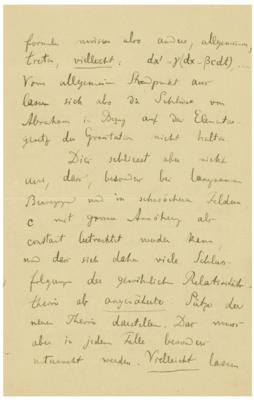 formeln müssen also andere, allgemeinere,
treten, vielleicht: dx' = γ(dx - βcdt), ...
Vom allgemeinen Standpunkt aus
lassen sich also die Schlüsse von
Abraham in Bezug auf das Elementar-
gesetz der Gravitation nicht halten.
Dies schliesst aber nicht
aus, dass, besonder bei langsamen
Bewegungen und in schwächeren Feldern
c mit grosser Annäherung als
constant betrachtet werden kann,
und dass sich daher viele Schluss-
folgerungen der gewöhnlichen Relativitäts-
theorie als angenäherte Sätze der
neuen Theorie darstellen. Das muss
aber in jedem Falle besonders
untersucht werden. Vielleicht lassen